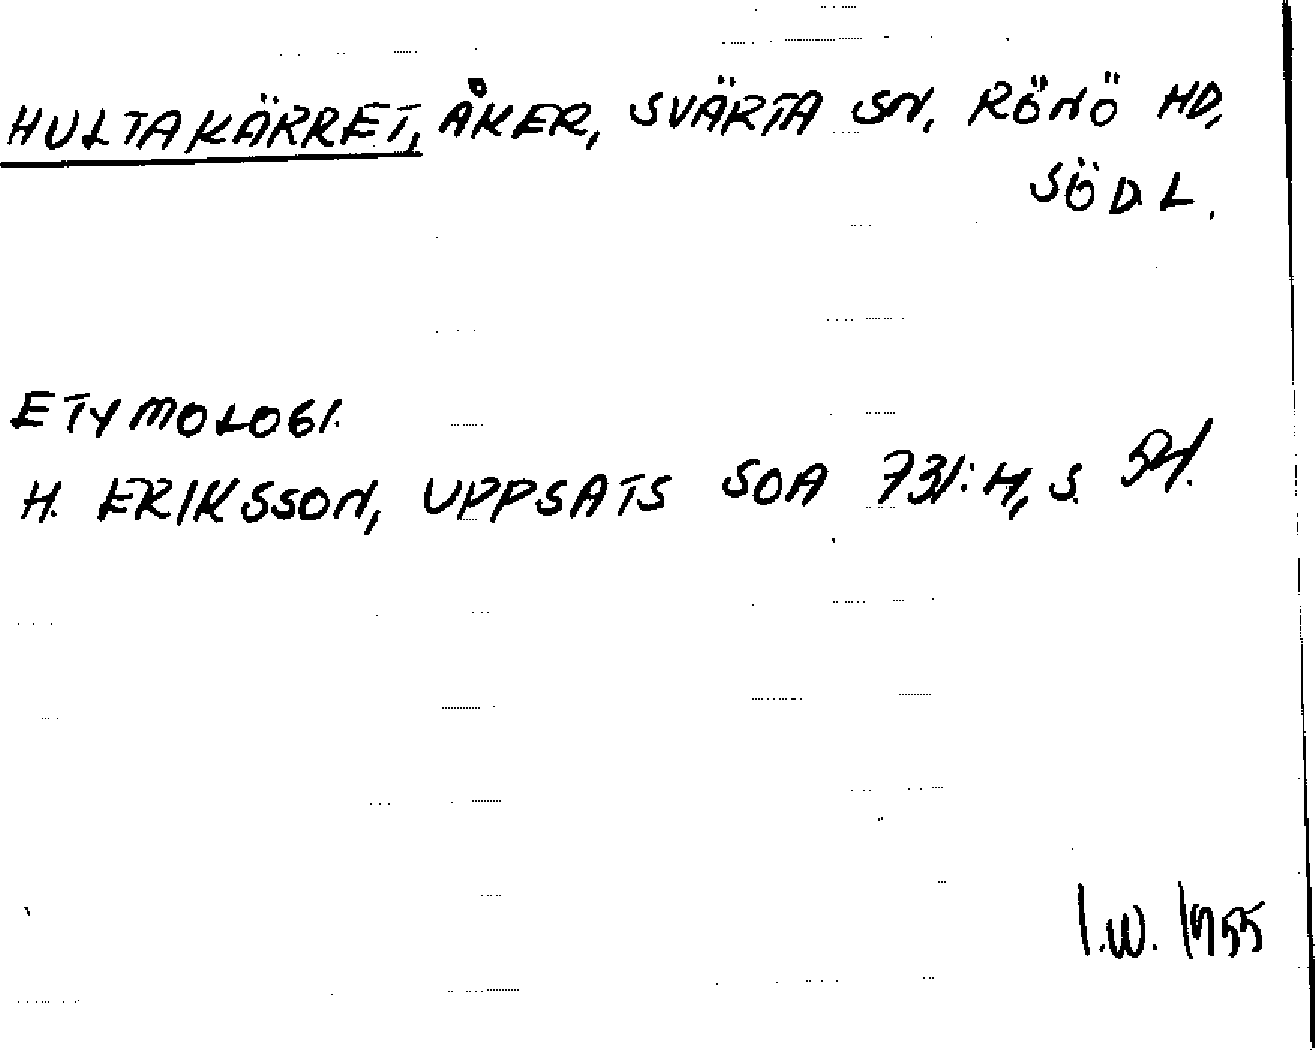 HULTAKÄRRET, ÅKER, SVÄRTA SN, RÖNÖ HD,
SÖDL.
ETYMOLOGI.
H. ERIKSSON, UPPSATS SOA 731:H, S. 54.
I.W. 1955